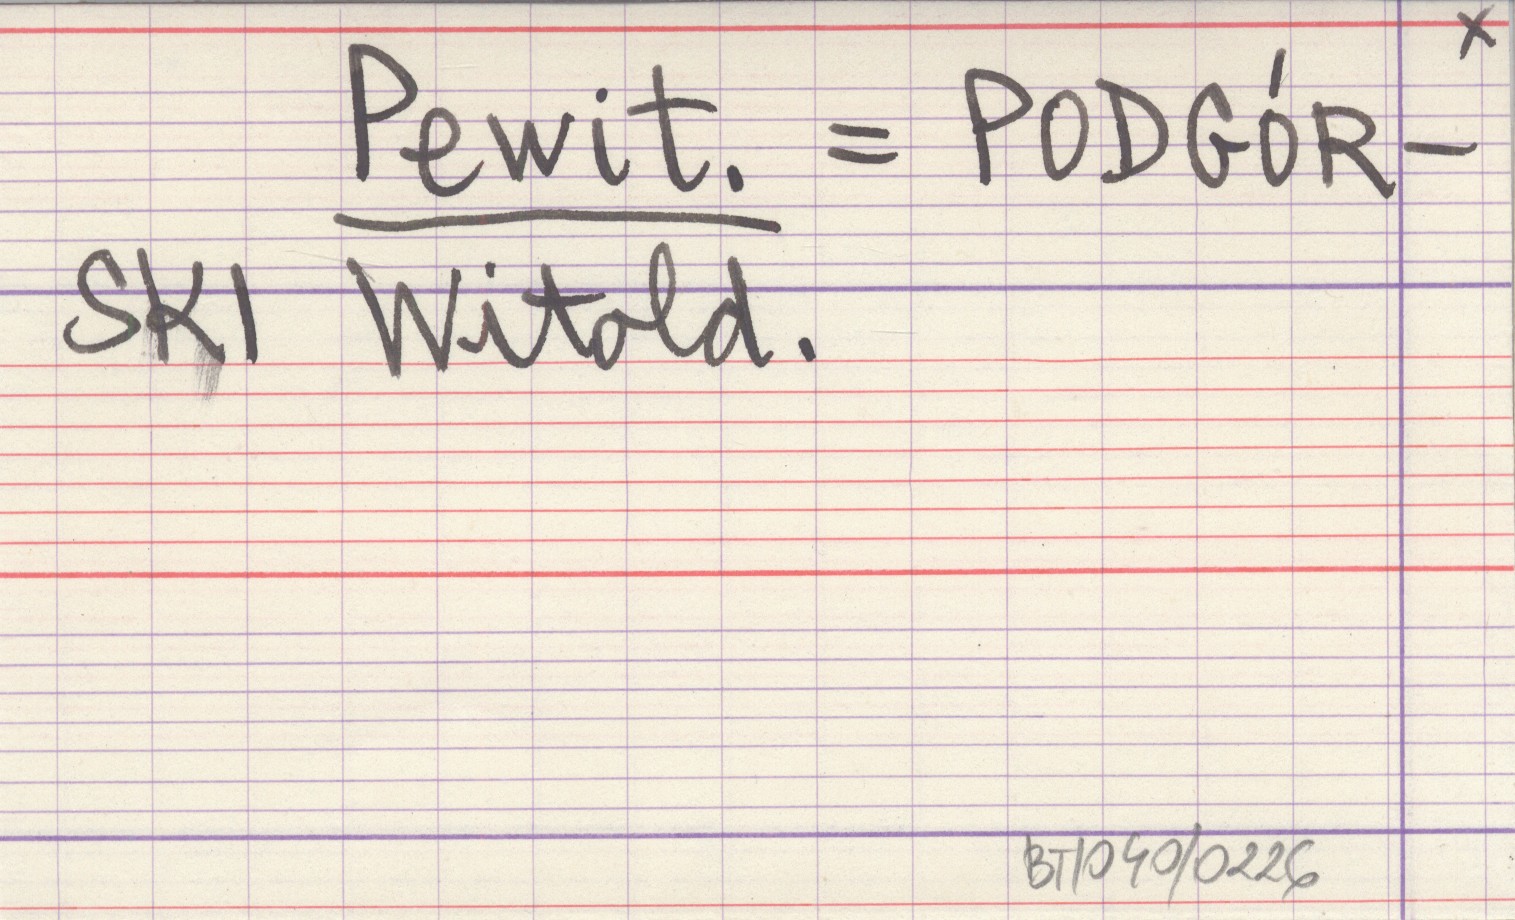 x
Pewit. = PODGÓR-
SKI Witold.
BT/040/0226